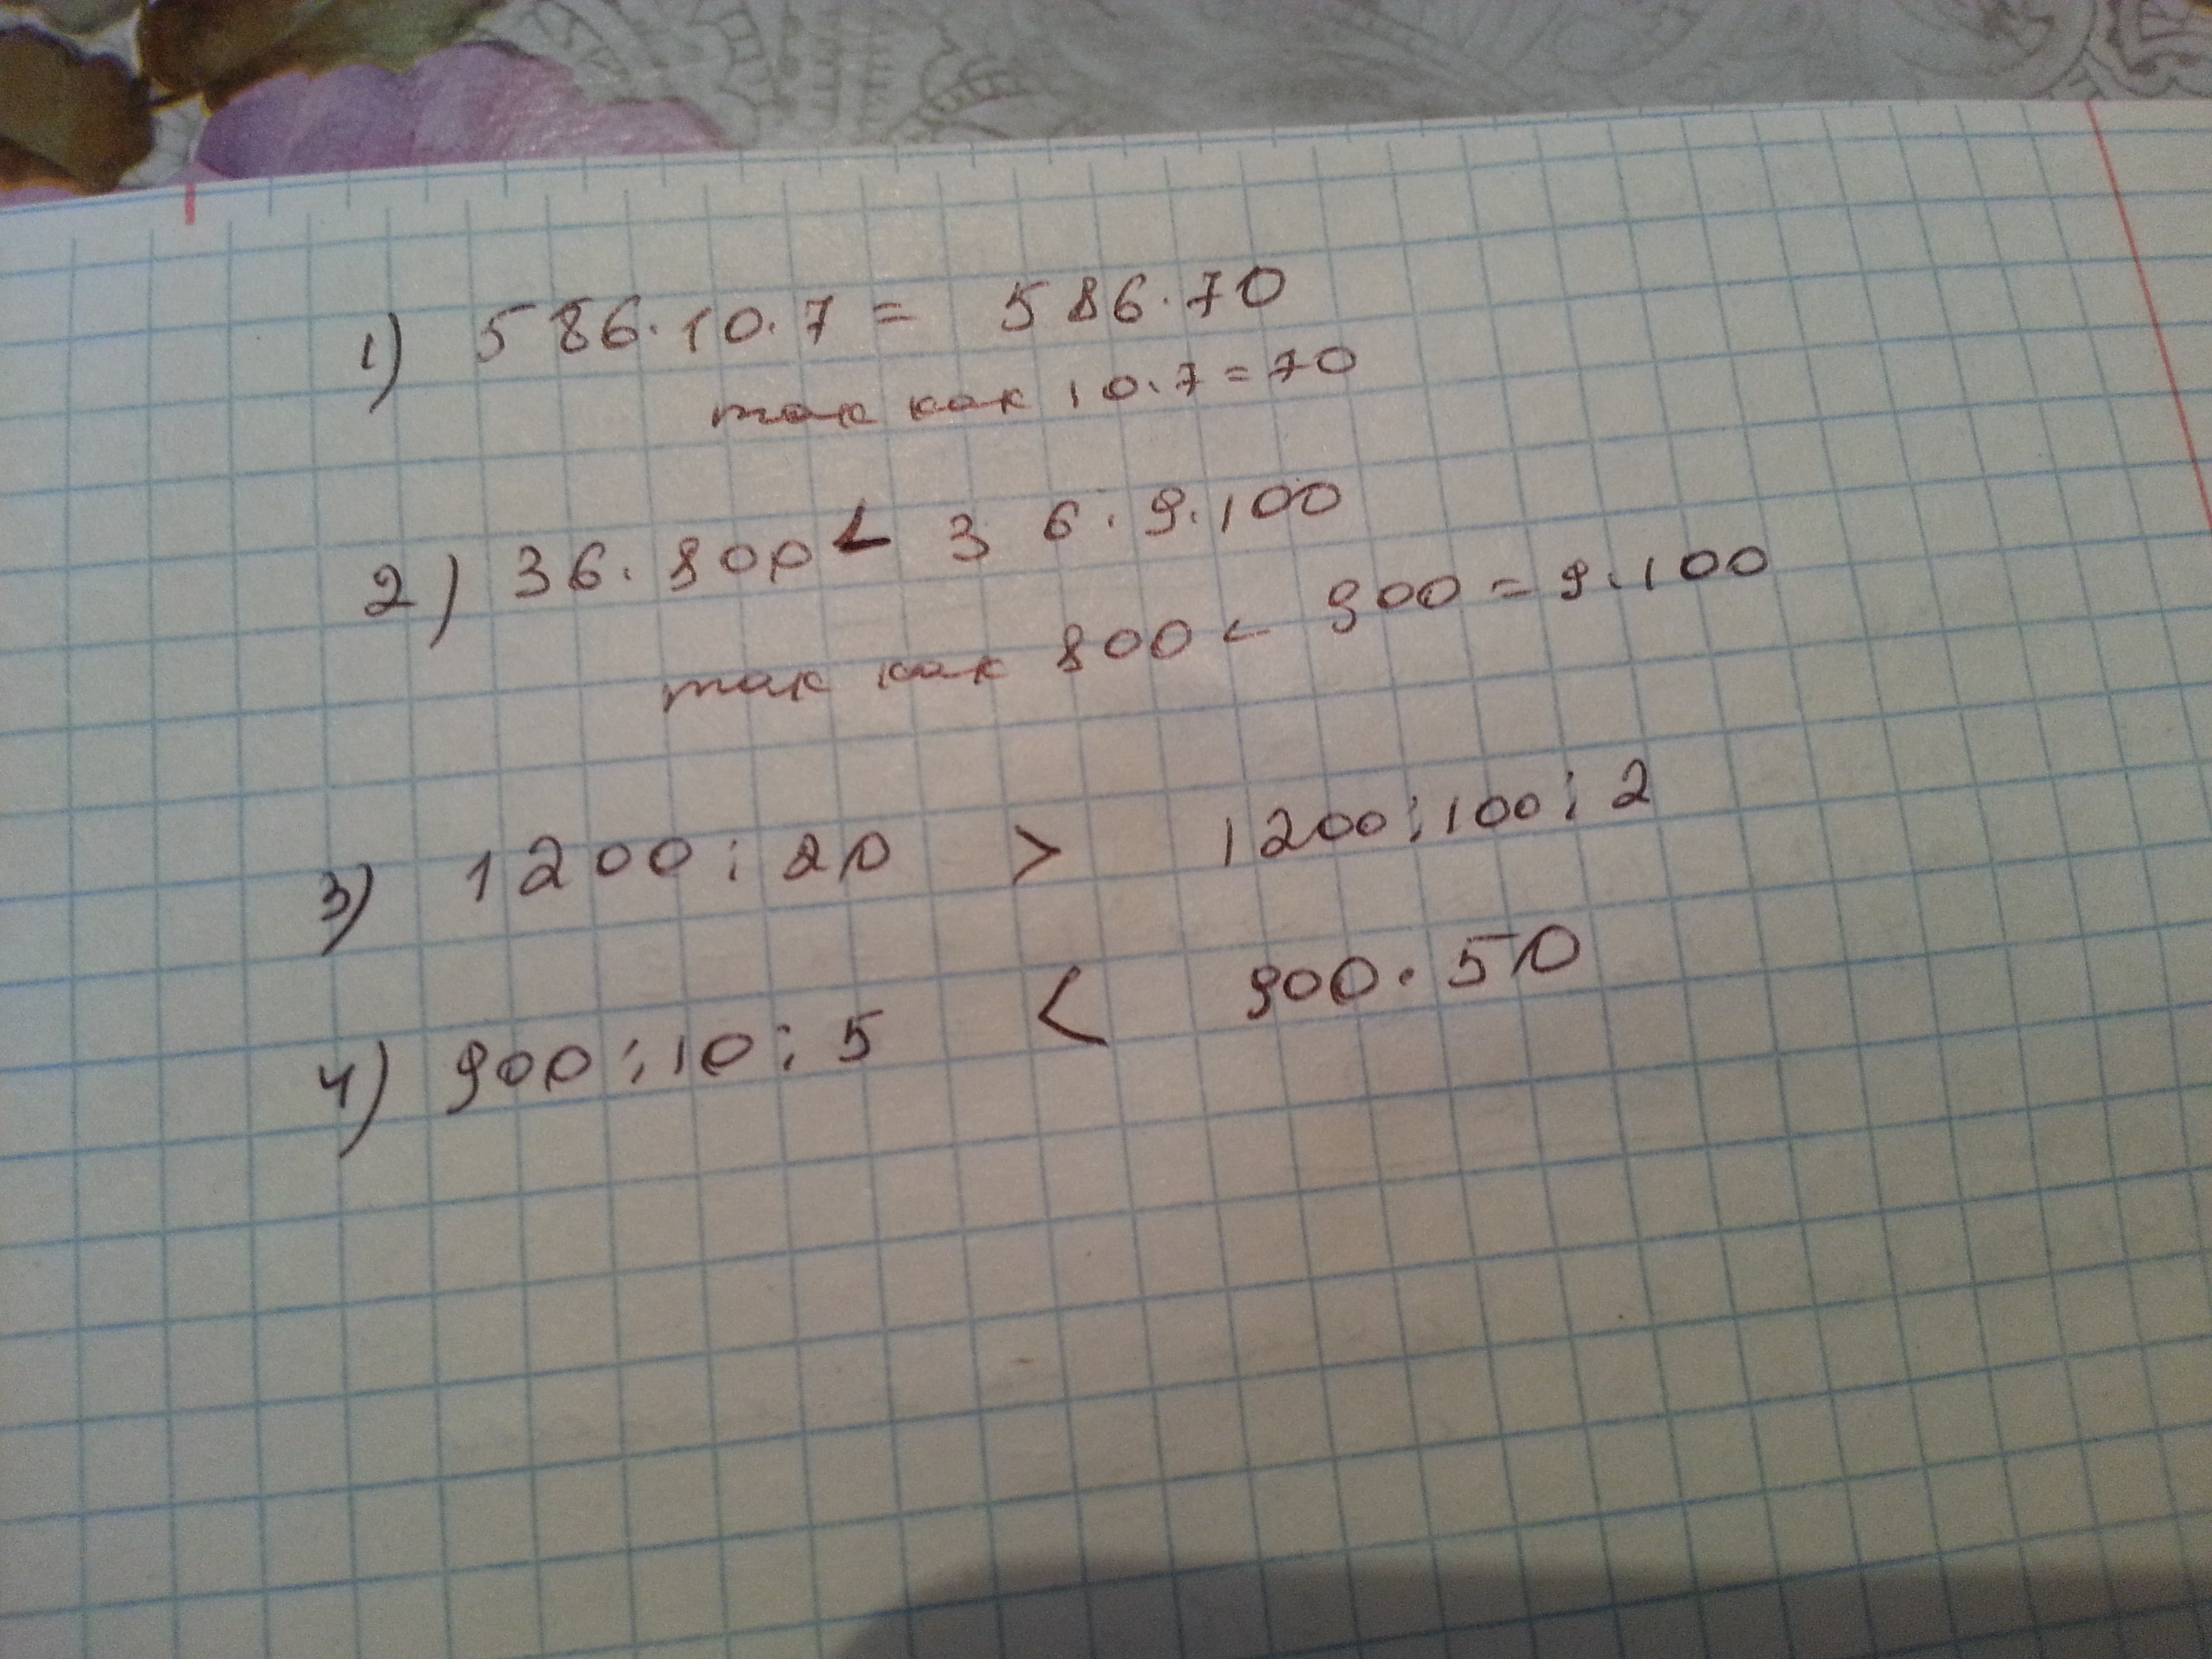 1) 586·10·7 = 586·70
так как 10·7=70
2) 36·800 < 36·9·100
так как 800 < 900 = 9·100
3) 1200:20 > 1200:100:2
4) 900:10:5 < 900·50